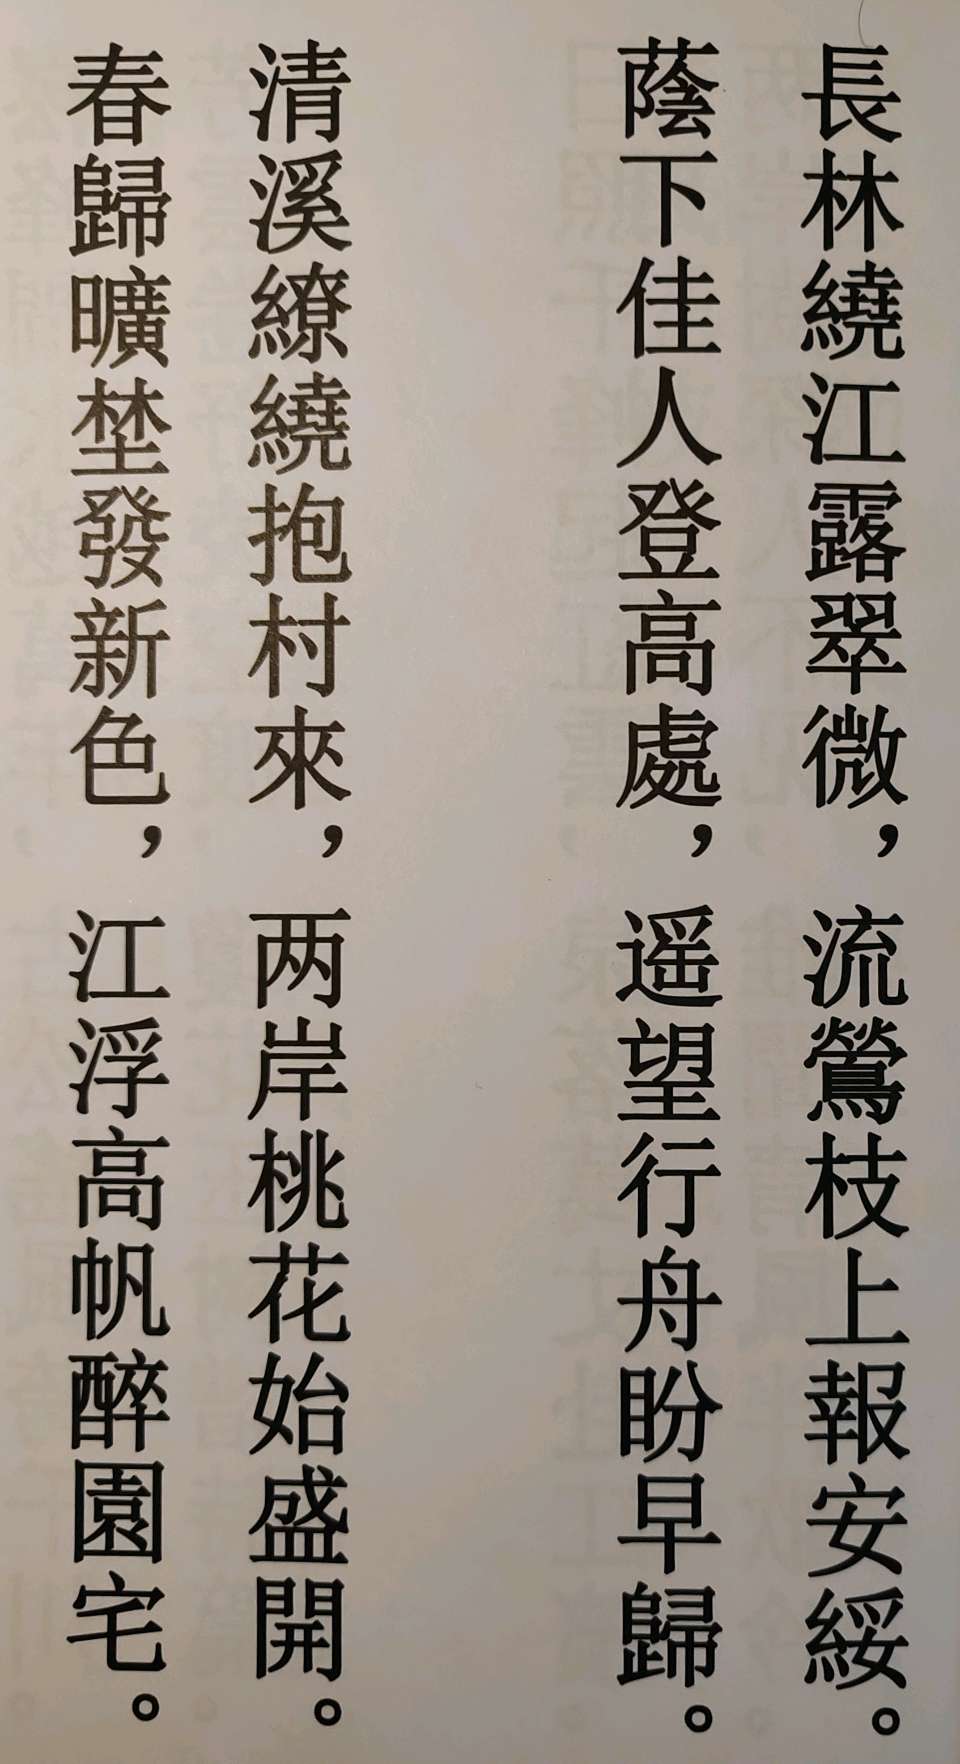 長林繞江露翠微，流鶯枝上報安綏。
蔭下佳人登高處，遥望行舟盼早歸。
清溪繚繞抱村來，两岸桃花始盛開。
春歸曠埜發新色，江浮高帆醉園宅。